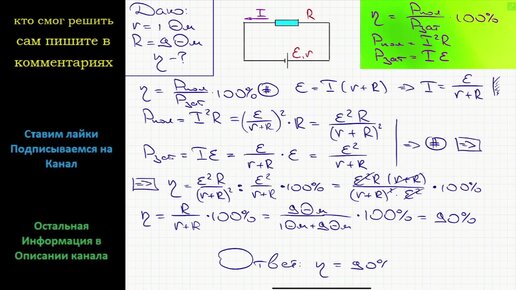 кто смог решить
сам пишите в
комментариях
Ставим лайки
Подписываемся на
Канал
Остальная
Информация в
Описании канала
Дано:
r = 1 Ом
R = 9 Ом
η - ?
I R
ε, r
η = Pпол/Pзат · 100%
Pпол = I²R
Pзат = I ε
η = Pпол/Pзат · 100% (*) ε = I (r+R) => I = ε/(r+R)
Pпол = I²R = (ε/(r+R))² · R = ε²R/(r+R)²
Pзат = Iε = ε/(r+R) · ε = ε²/(r+R)
=> (*) =>
=> η = ε²R/(r+R)² : ε²/(r+R) · 100% = ε²R (r+R)/((r+R)² · ε²) · 100%
η = R/(r+R) · 100% = 9 Ом/(1 Ом + 9 Ом) · 100% = 90%
Ответ: η = 90%